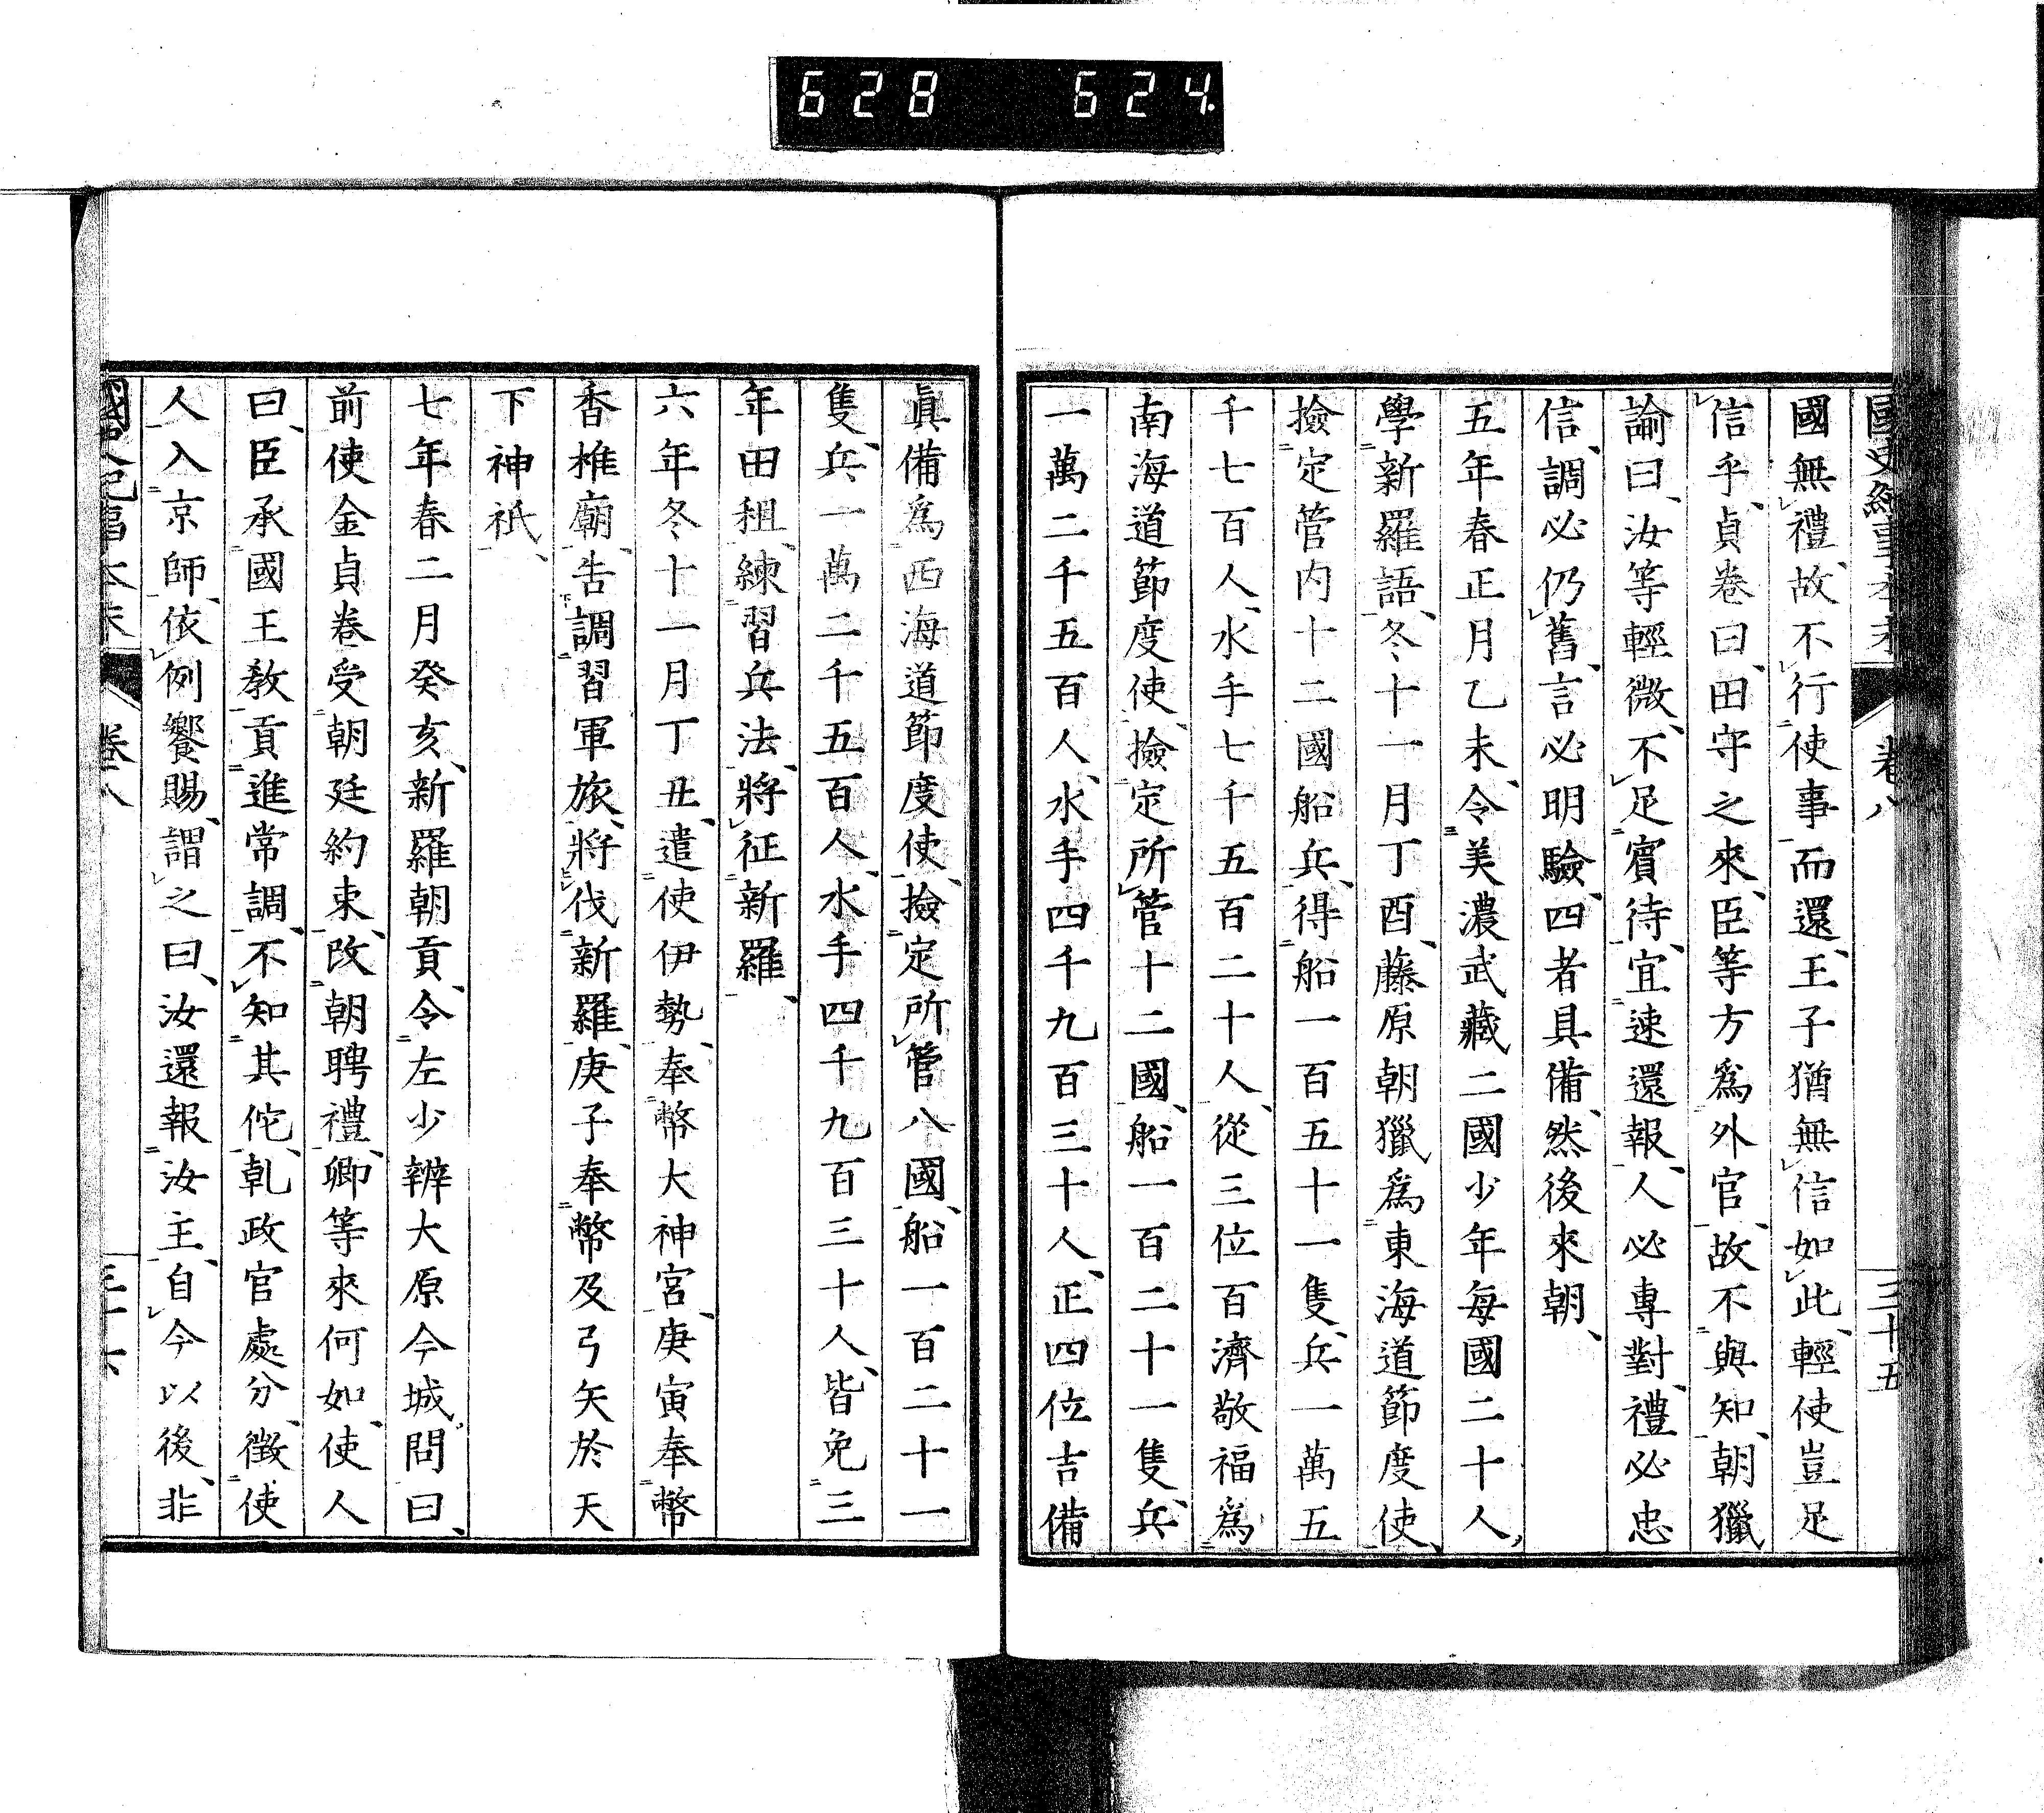 628 624
國史紀事本末 卷八 三十五
國無禮、故不行使事而還、王子猶無信如此、輕使豈足
信乎、貞卷曰、田守之來、臣等方爲外官、故不與知、朝獵
諭曰、汝等輕微、不足賓待、宜速還報、人必專對、禮必忠
信、調必仍舊、言必明驗、四者具備、然後來朝、
五年春正月乙未、令美濃武藏二國少年每國二十人、
學新羅語、冬十一月丁酉、藤原朝獵爲東海道節度使、
撿定管内十二國船兵、得船一百五十一隻、兵一萬五
千七百人、水手七千五百二十人、從三位百濟敬福爲
南海道節度使、撿定所管十二國、船一百二十一隻、兵
一萬二千五百人、水手四千九百三十人、正四位吉備
眞備爲西海道節度使、撿定所管八國、船一百二十一
隻、兵一萬二千五百人、水手四千九百三十人、皆免三
年田租、練習兵法、將征新羅、
六年冬十一月丁丑、遣使伊勢、奉幣大神宮、庚寅奉幣
香椎廟、告調習軍旅、將伐新羅、庚子奉幣及弓矢於天
下神祇、
七年春二月癸亥、新羅朝貢、令左少辨大原今城、問曰、
前使金貞卷受朝廷約束、改朝聘禮、卿等來何如、使人
曰、臣承國王敎、貢進常調、不知其佗、乹政官處分、徵使
人入京師、依例饗賜、謂之曰、汝還報汝主、自今以後、非
國史紀事本末 卷八 三十六